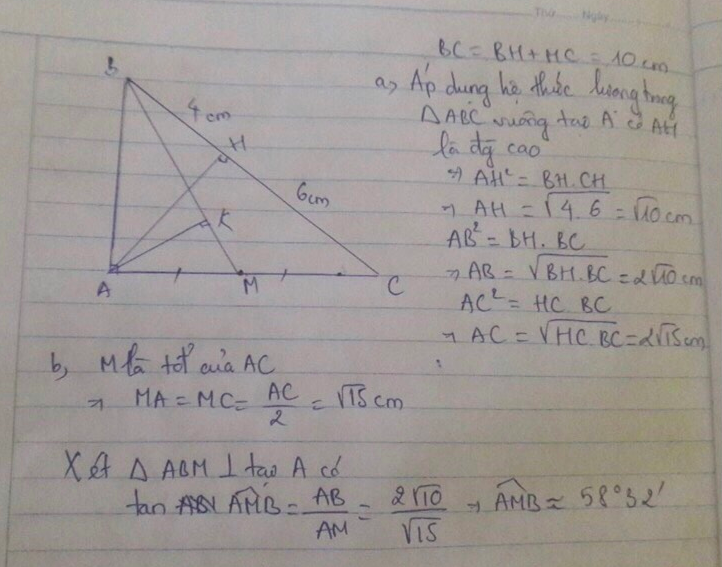 Thứ Ngày
BC = BH + HC = 10 cm
a, Áp dụng hệ thức lượng trong
Δ ABC vuông tại A có AH
là đg cao
⇒ AH² = BH . CH
→ AH = √4.6 = √10 cm
AB² = BH . BC
→ AB = √BH.BC = 2√10 cm
AC² = HC BC
→ AC = √HC.BC = 2√15 cm
B
4 cm
H
6cm
K
A
M
C
b, M là tđ của AC
→ MA = MC = AC/2 = √15 cm
Xét Δ ABM ⊥ tại A có
tan AMB = AB/AM = 2√10/√15 → AMB ≈ 58°32'